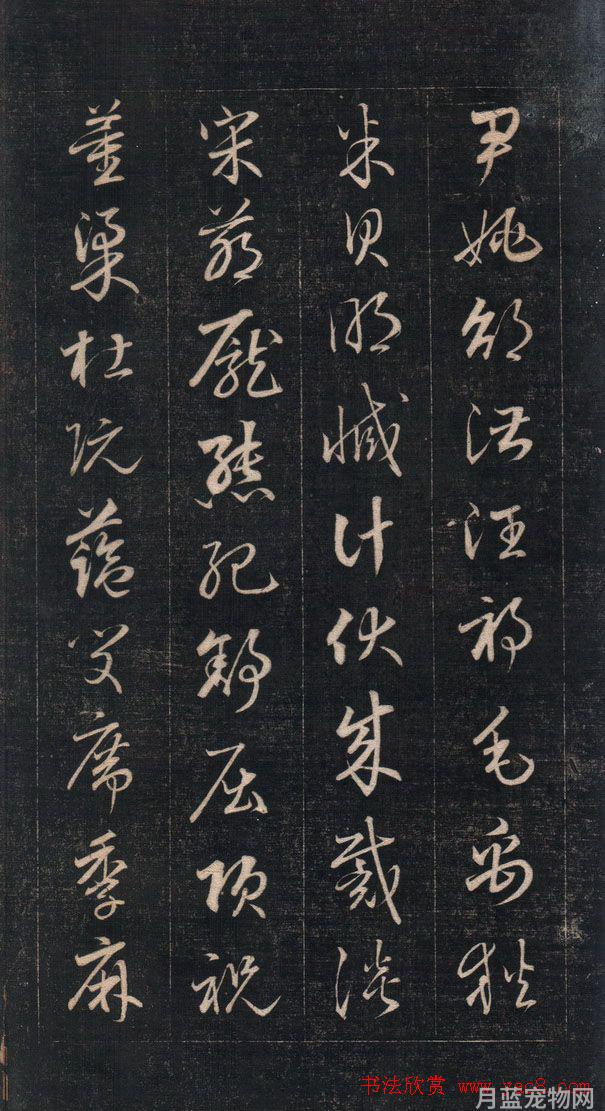 尹姚邵湛汪祁毛禹狄
米貝明臧計伏成戴談
宋茅龐熊紀舒屈項祝
董梁杜阮藍閔席季麻
书法欣赏 www.yac8.com
月蓝宠物网